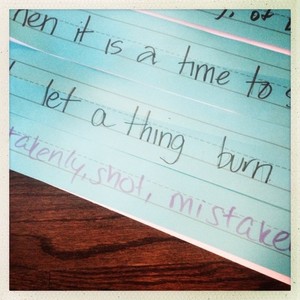 of
hen it is a time to
let a thing burn
takenly, shot, mistake